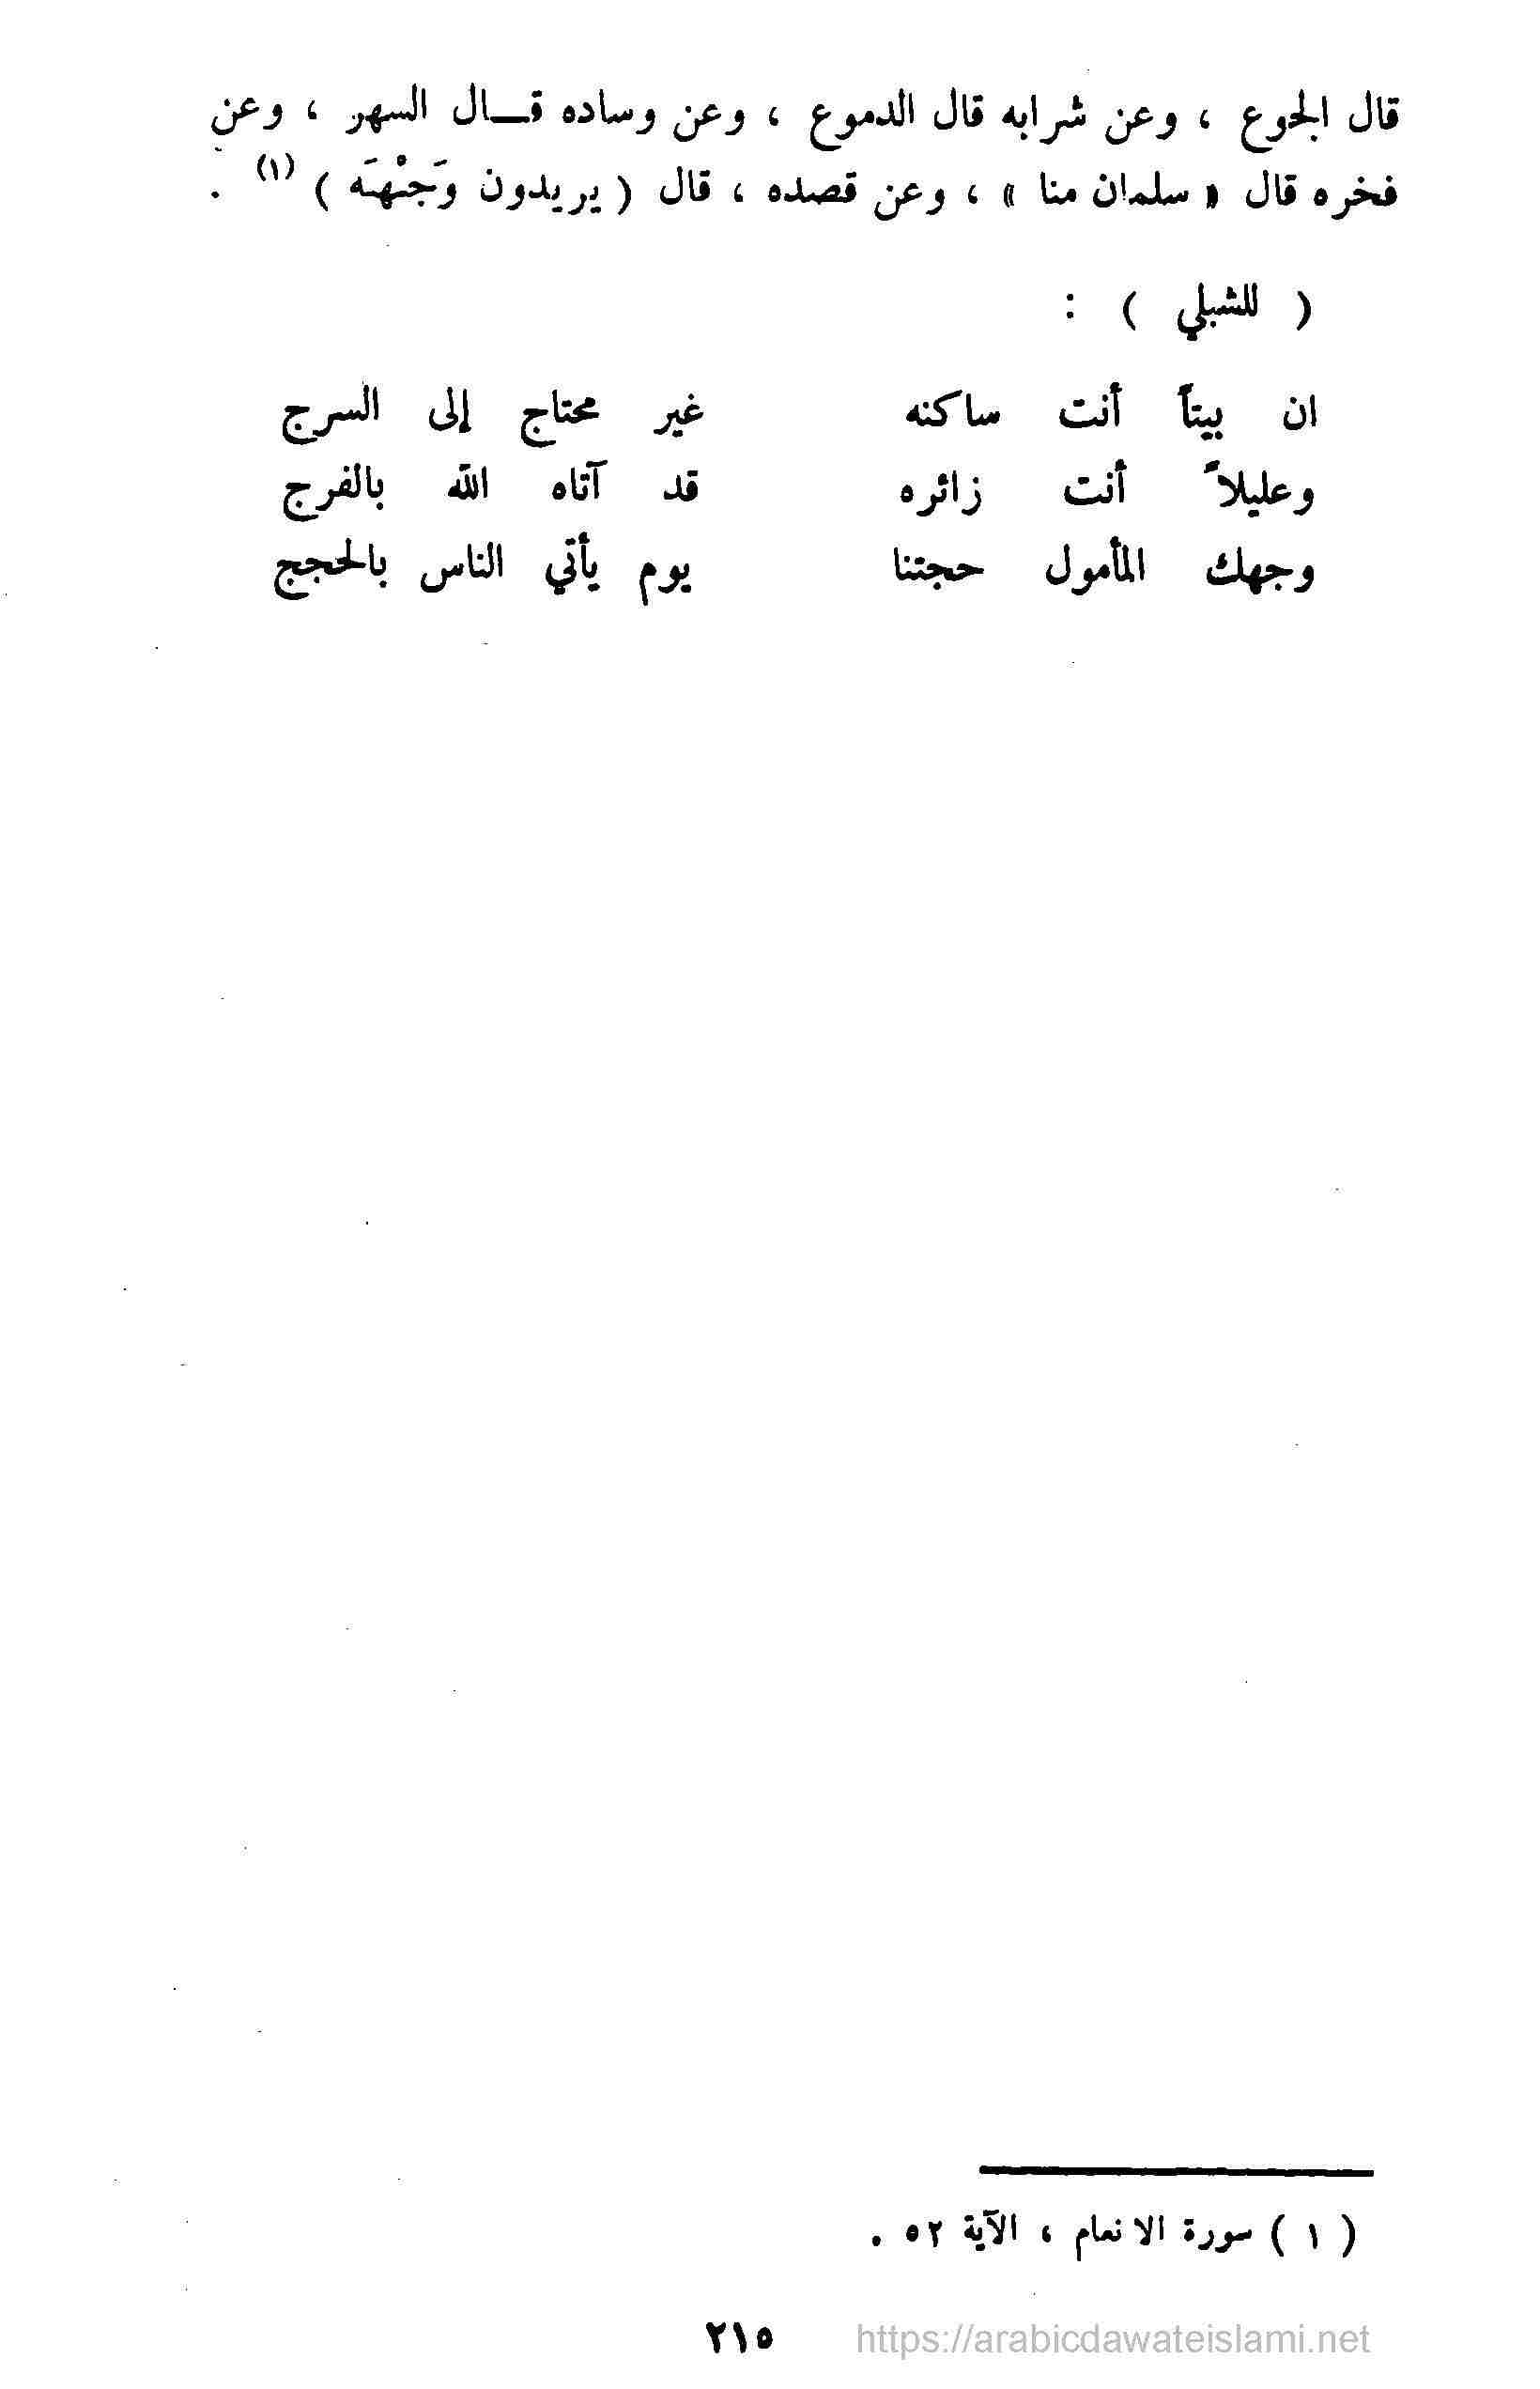 قال الجوع ، وعن شرابه قال الدموع ، وعن وساده قـــال السهر ، وعن
فخره قال « سلمان منا » ، وعن قصده ، قال ( يريدون وَجْهَه ) (١) .
( للشبلي ) :
ان بيتاً أنت ساكنه غير محتاج إلى السرج
وعليلاً أنت زائره قد آتاه الله بالفرج
وجهك المأمول حجتنا يوم يأتي الناس بالحجج
( ١ ) سورة الانعام ، الآية ٥٢ .
٢١٥
https://arabicdawateislami.net